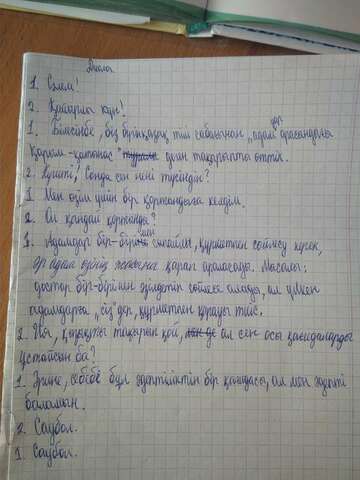 Диалог
1. Сәлем!
2. Қайырлы күн!
1. Білесінбе, біз бүгін қазақ тілі сабағынан "адам арасындағы
Қарым-қатынас" деген тақырыпты өттік.
2. Күшті! Сонда сен нені түсіндің?
1. Мен өзім үшін бір қортындыға келдім.
2. Ол қандай қортынды?
1. Адамдар бір-бірімен сыпайы, құрметпен сөйлесу керек,
әр адам өзінің жасына қарап араласады. Мысалы:
достар бір-бірімен әзілдетіп сөйлесе алады, ал үлкен
адамдарға "сіз" деп, құрметпен қарауы тиіс.
2. Ия, қызықты тақырып қой, ал сен осы қағидаларды
ұстайсан ба?
1. Әрине, себебі бұл әдептіліктің бір қағидасы, ал мен әдепті
баламын.
2. Саубол.
1. Саубол.